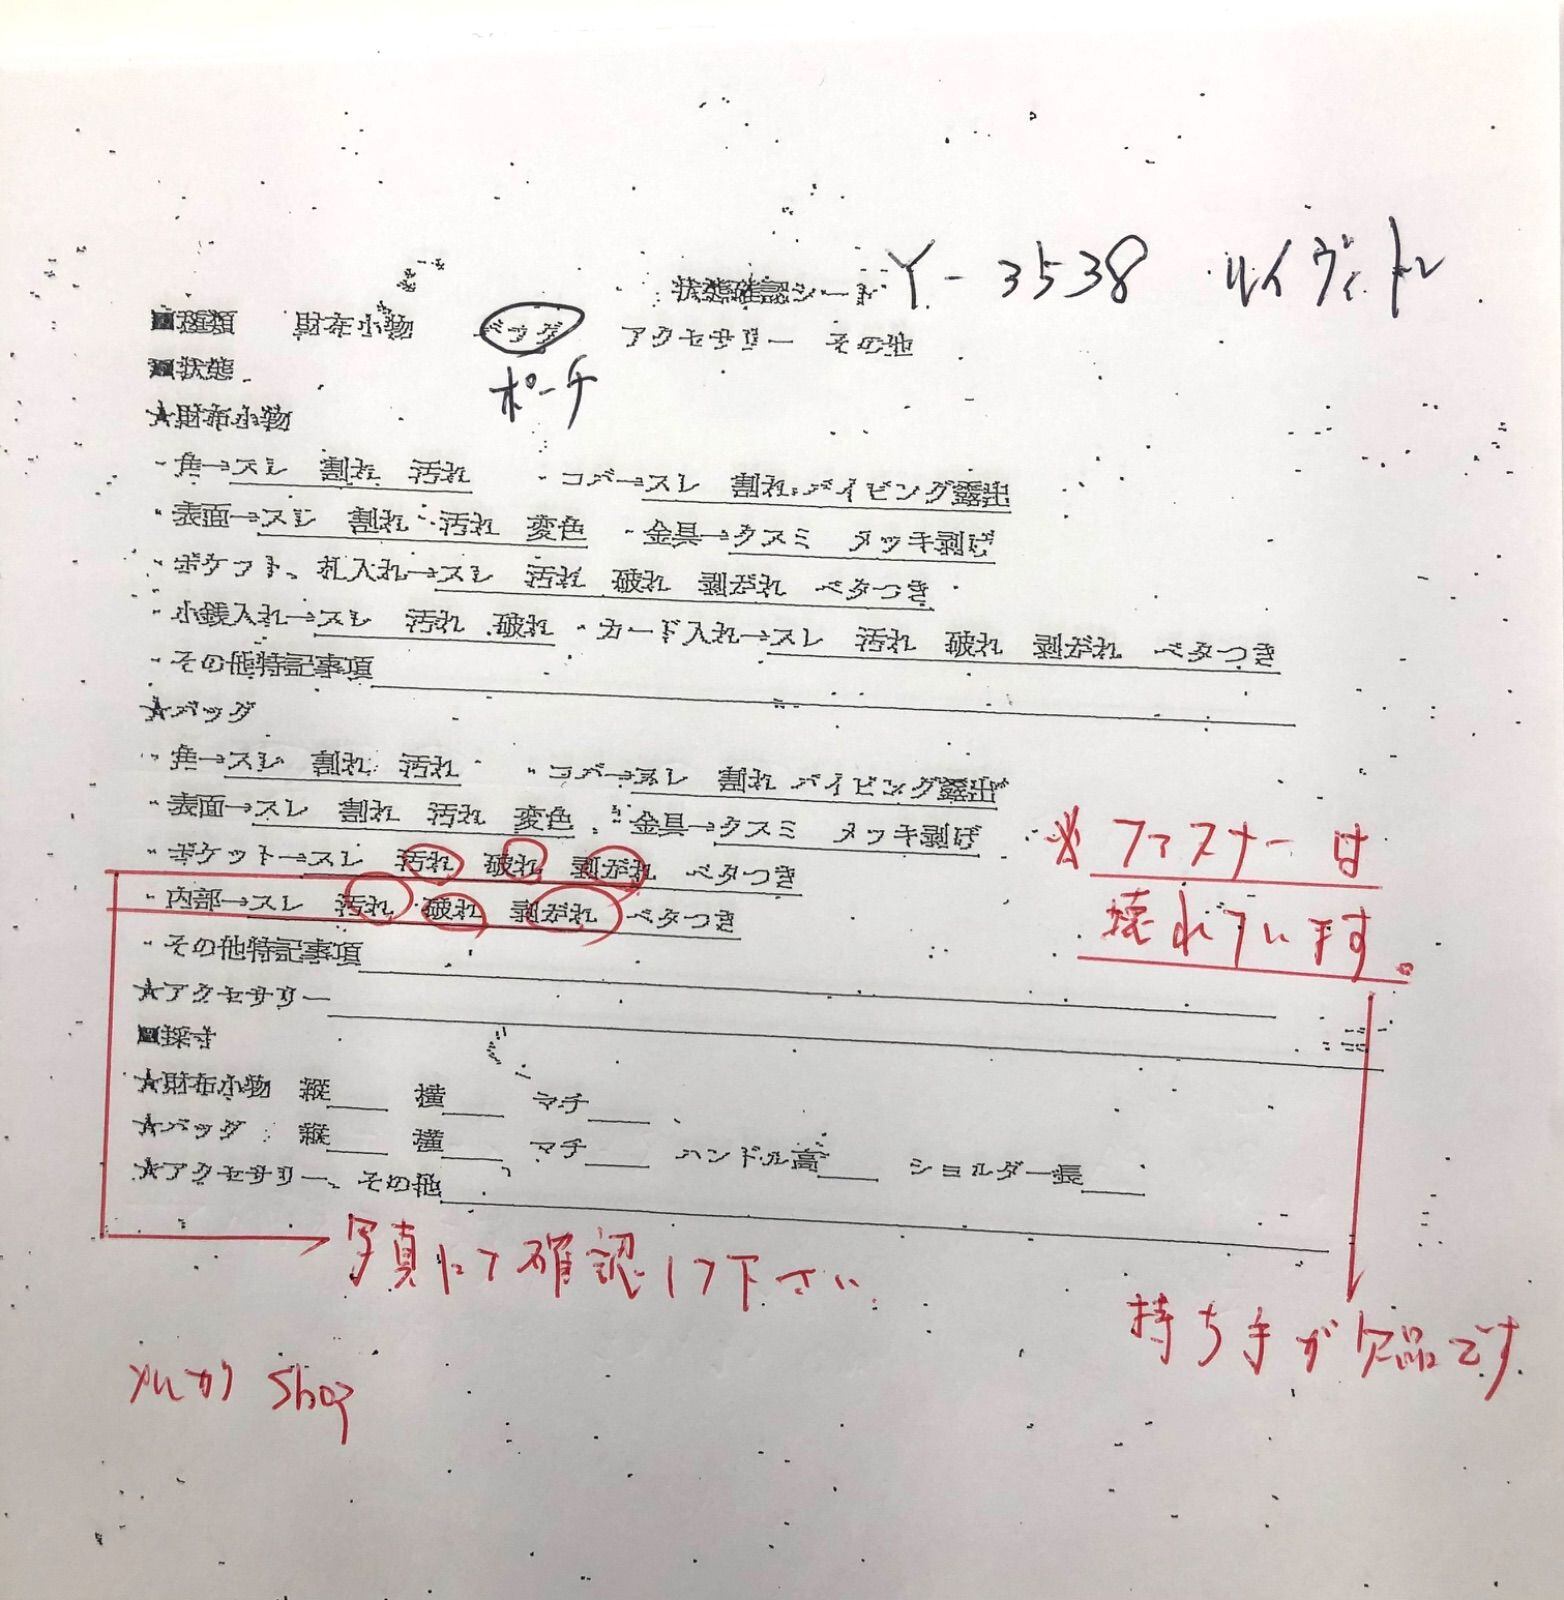 状態確認シート Y-3538 ルイヴィトン
■種類 財布小物 バッグ アクセサリー その他
ポーチ
■状態
★財布小物
・角→スレ 割れ 汚れ ・コバ→スレ 割れ パイピング露出
・表面→スレ 割れ 汚れ 変色 ・金具→クスミ メッキ剥げ
・ポケット、札入れ→スレ 汚れ 破れ 剥がれ ベタつき
・小銭入れ→スレ 汚れ 破れ ・カード入れ→スレ 汚れ 破れ 剥がれ ベタつき
・その他特記事項
★バッグ
・角→スレ 割れ 汚れ ・コバ→スレ 割れ パイピング露出
・表面→スレ 割れ 汚れ 変色 ・金具→クスミ メッキ剥げ
・ポケット→スレ 汚れ 破れ 剥がれ ベタつき
※ファスナーは
壊れています。
・内部→スレ 汚れ 破れ 剥がれ ベタつき
・その他特記事項
★アクセサリー
■採寸
★財布小物 縦 横 マチ
★バッグ 縦 横 マチ ハンドル高 ショルダー長
★アクセサリー、その他
写真にて確認して下さい
持ち手が欠品です
メルカリ shop